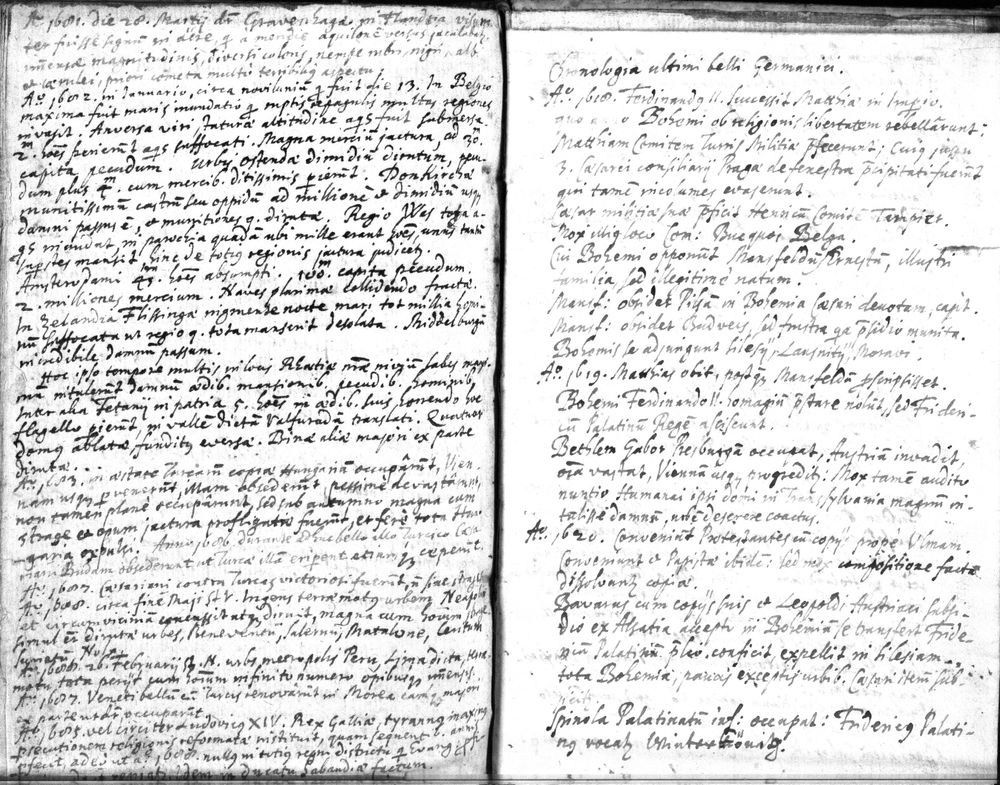 Aº 1681. die 28. Martij Gravenhagæ in Hlandia visum
fuisse signum in aëre, q a monde aquilonē versus
magnitudinis, diversi coloris, nempe rubri, nigri, albi
et cærulei, priori cometa multò terribiliq aspectu
Aº. 1682. in Januario, circa noviluniū q fuit die 13. In Belgio
maxima fuit maris inundatio q ruptis repagulis multas regiones
invasit. Anversa viri staturæ altitudine aqs fuit submersa.
2. hoēs perierūt aqs suffocati. Magna merciū jactura, ad 30.
capita pecudum. Urbis ostendæ dimidiū dirutum,
dum plus cum mercib. ditissimis pierūt. Donkirchæ
munitissimum castrū seu oppidū ad millionē et dimidiū usq
damni passum ē, et munitiones q. dirutæ. Regio Was tota a-
qs inundat in parœcia quadā ubi mille erant hoēs, unus tantū
supstes mansit hinc de totiq regionis jactura judicet.
Amsterodami hoēs absumpti. 100. capita pecudum.
2. milliones mercium. Naves plurimæ collidendo fractæ.
In Zelandia Flissingæ nocte mari tot millia homi-
nū suffocata ut regio q. tota manserit desolata. Middelburgū
incredibile damnum passum.
Hoc ipso tempore multis in locis Rhætiæ niviū labes
intulerūt damnū ædib. mansionib. pecudib. hominib,
Inter alia Fetanij in patria 5. hoēs in ædib. suis horrendo hoc
flagello pierūt, in valle dictū Vulfuradū translati. Quatuor
domq ablatæ funditq eversæ. Binæ aliæ majori ex parte
dirutæ.
Aº. 1683. in æstate Turcarū copiæ Hungariam occupārūt, Vien-
nam usq pvenerūt, illam obsederūt, pessimè devastārunt,
non tamen planè occupārunt, sed sub autumno magna cum
strage et opum jactura profligatæ fuerūt, et ferè tota Hun-
garia expulsi. Anno 1686. durante bello illo Turcico Cæ-
riani Budam obsederunt ut Turcæ illā eripent etiamq ceperūt.
Aº. 1687. Cæsariani contra Turcas victoriosi fuerūt, nō sine strage
Aº. 1688. circa finē Maji St V. Ingens terræ motq urbem Neapoli
et circumvicina concussit atq diruit, magna cum hoīum
simul etc. dirutæ urbes, Beneventū, Salernū, Mataloné,
Aº. 1688. 26. Februarij St. N. urbs metropolis Peru, Lima dicta,
motu, tota perijt cum hoīum infinito numero opibusq
Aº. 1687. Veneti bellū cū Turcis renovarūt in Morea eamq majori
ex parte occuparūt.
Aº. 1685. vel circiter Ludovicq XIV. Rex Galliæ, tyrannq
psecutionem religionis reformatæ instituit, quam sequent. anni
adeo ut aº. 1688. nullq in totiq regni districtu q
idem in ducatu Sabaudiæ factum.
Chronologia ultimi belli Germanici.
Aº. 1618. Ferdinandq II. successit Matthiæ in Impio.
quo anno Bohemi ob religionis libertatem rebellārunt.
Matthiam Comitem Turris Militiæ pfecerunt, Cuiq jussu
3. Cæsarei consiliarij Pragæ de fenestra pcipitati fuerūt
qui tamē incolumes evaserunt.
Cæsar militiæ suæ pficit Henricū Comitē Tampier.
Mox illiq loco Com: Bucquoi Belga
Cui Bohemi opponūt Mansfeldū Ernestū, illustri
familia sed illegitimè natum.
Mansf: obsidet Pilsā in Bohemia Cæsari devotam, capit.
Mansf: obsidet Budveis, sed frustra qa psidio munita.
Bohemis se adjungunt Silesij, Lausnitij, Moravi.
Aº. 1619. Matthias obit, postqq Mansfeldū pscripsisset.
Bohemi Ferdinando II. homagiū pstare nolūt, sed Frideri-
cū Palatinū Regē asciscunt.
Bethlem Gabor Presburgū occupat, Austriam invadit,
oīa vastat, Viennā usq progreditī: Mox tamē audito
nuntio Humanai ipsi domi in Transsylvania magnū in-
tulisse damnū, urbē deserere coactus.
Aº. 1620. Conveniūt Protestantes cū copijs prope Ulmam.
Conveniunt et Papistæ ibidē: sed mox compositione facta
dissolvunt copiæ.
Bavarus cum copijs suis et Leopoldi Austriaci subsi-
dio ex Alsatia accepto in Bohemiā se transfert Fride-
ricū Palatinū plio conficit expellit in Silesiam
tota Bohemia, paucis exceptis urbib. Cæsari iterū sub-
jicit.
Spinola Palatinatū inf: occupat: Fridericq Palati-
nq vocatq Winter König.